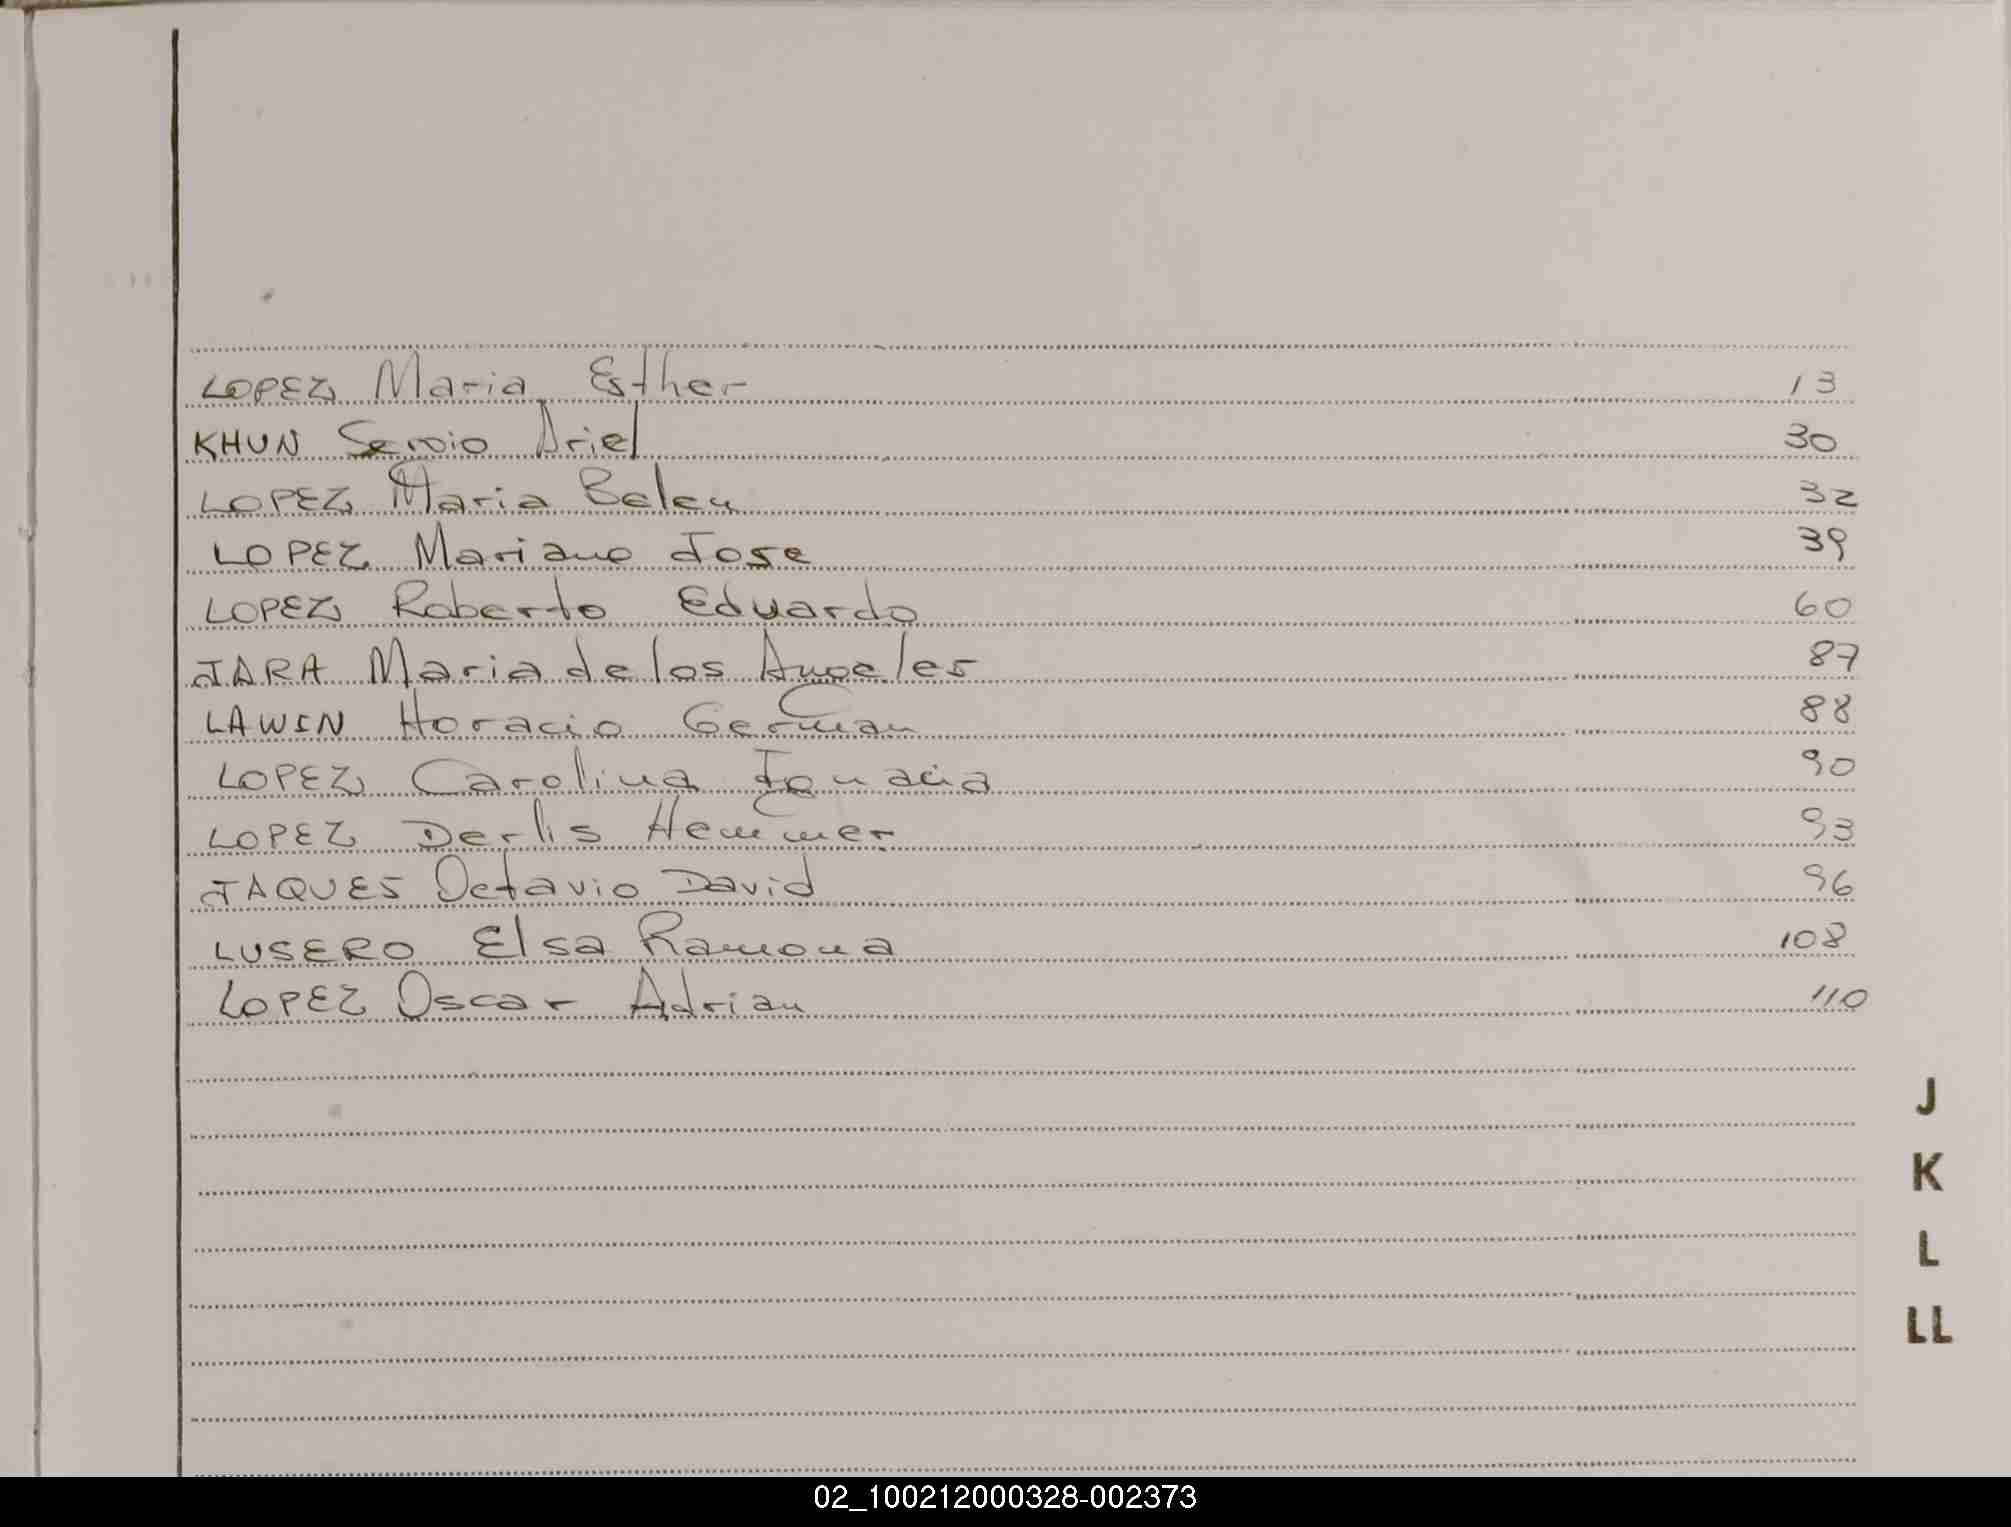 LOPEZ Maria Esther 13
KHUN Sergio Ariel 30
LOPEZ Maria Belen 32
LOPEZ Mariano Jose 39
LOPEZ Roberto Eduardo 60
JARA Maria de los Angeles 87
LAWIN Horacio German 88
LOPEZ Carolina Ignacia 90
LOPEZ Derlis Hemmer 93
JAQUES Octavio David 96
LUSERO Elsa Ramona 108
LOPEZ Oscar Adrian 110
J
K
L
LL
02_100212000328-002373